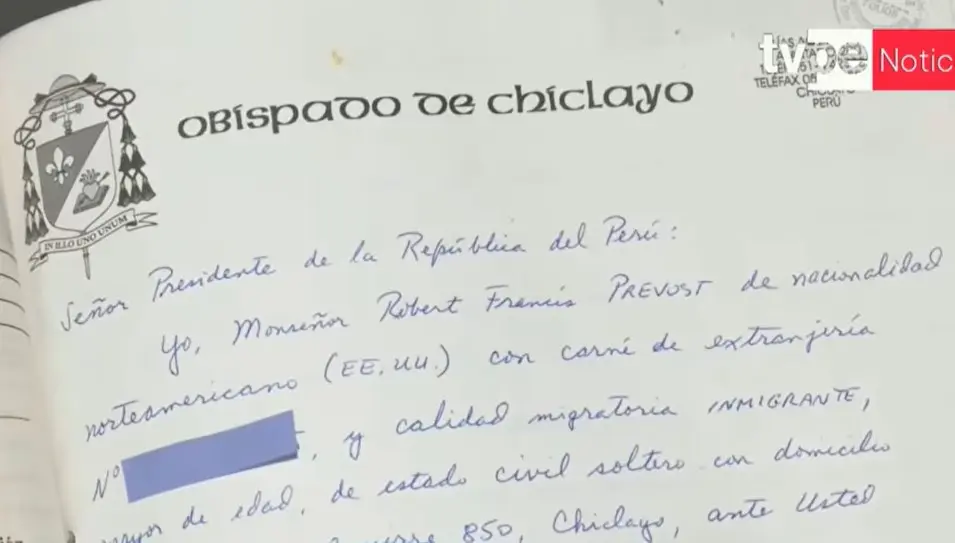 tvpe Notic
TELEFAX
PERÚ
OBISPADO DE CHICLAYO
IN ILLO UNO UNUM
Señor Presidente de la República del Perú:
Yo, Monseñor Robert Francis PREVOST de nacionalidad
norteamericano (EE.UU.) con carné de extranjería
Nº , y calidad migratoria INMIGRANTE,
mayor de edad, de estado civil soltero con domicilio
850, Chiclayo, ante Usted